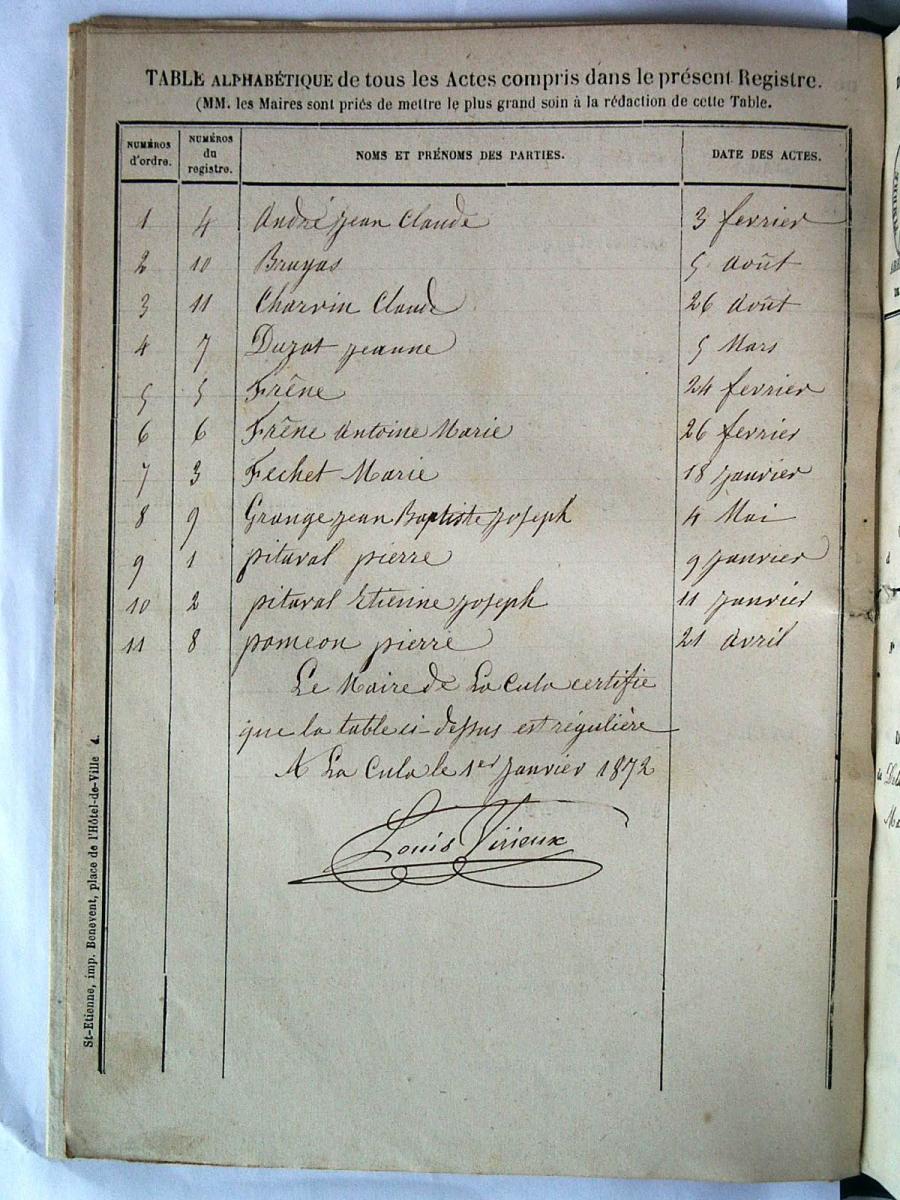 TABLE ALPHABÉTIQUE de tous les Actes compris dans le présent Registre.
(MM. les Maires sont priés de mettre le plus grand soin à la rédaction de cette Table.
NUMÉROS d'ordre. NUMÉROS du registre. NOMS ET PRÉNOMS DES PARTIES. DATE DES ACTES.
1 4 André Jean Claude 3 fevrier
2 10 Bruyas 5 Août
3 11 Charvin Claude 26 Août
4 7 Duzat jeanne 5 Mars
5 5 Frêne 24 fevrier
6 6 Frêne Antoine Marie 26 fevrier
7 3 Fechet Marie 18 janvier
8 9 Grange jean Baptiste joseph 4 Mai
9 1 pitaval pierre 9 janvier
10 2 pitaval Etienne joseph 11 janvier
11 8 pomeon pierre 21 avril
Le Maire de La Cula certifie
que la table ci-dessus est régulière
A La Cula le 1er Janvier 1872
Louis Virieux
St-Etienne, imp. Benevent, place de l'Hôtel-de-Ville 4.